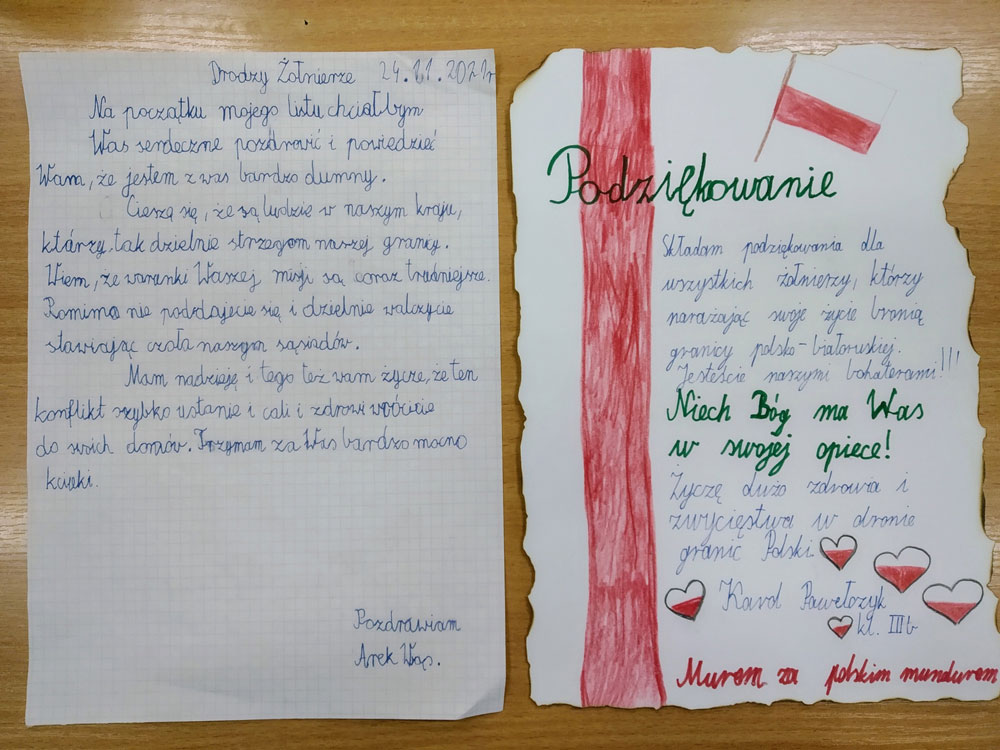 Drodzy Żołnierze 24.11.2021r
Na początku mojego listu chciałbym
Was serdeczne pozdrowić i powiedzieć
Wam, że jestem z was bardzo dumny.
Cieszą się, że są ludzie w naszym kraju,
którzy tak dzielnie strzegom naszej granicy.
Wiem, że warunki Waszej misji są coraz trudniejsze.
Pomimo nie poddajecie się i dzielnie walczycie
stawiając czoła naszym sąsiadów.
Mam nadzieję i tego też wam życzę, że ten
konflikt szybko ustanie i cali i zdrowi wrócicie
do swoich domów. Trzymam za Was bardzo mocno
kciuki.
Pozdrawiam
Arek Wąs.
Podziękowanie
Składam podziękowania dla
wszystkich żołnierzy, którzy
narażając swoje życie bronią
granicy polsko-białoruskiej.
Jesteście naszymi bohaterami!!!
Niech Bóg ma Was
w swojej opiece!
Życzę dużo zdrowia i
zwycięstwa w obronie
granic Polski.
Karol Pawełczyk
kl. IIIb
Murem za polskim mundurem